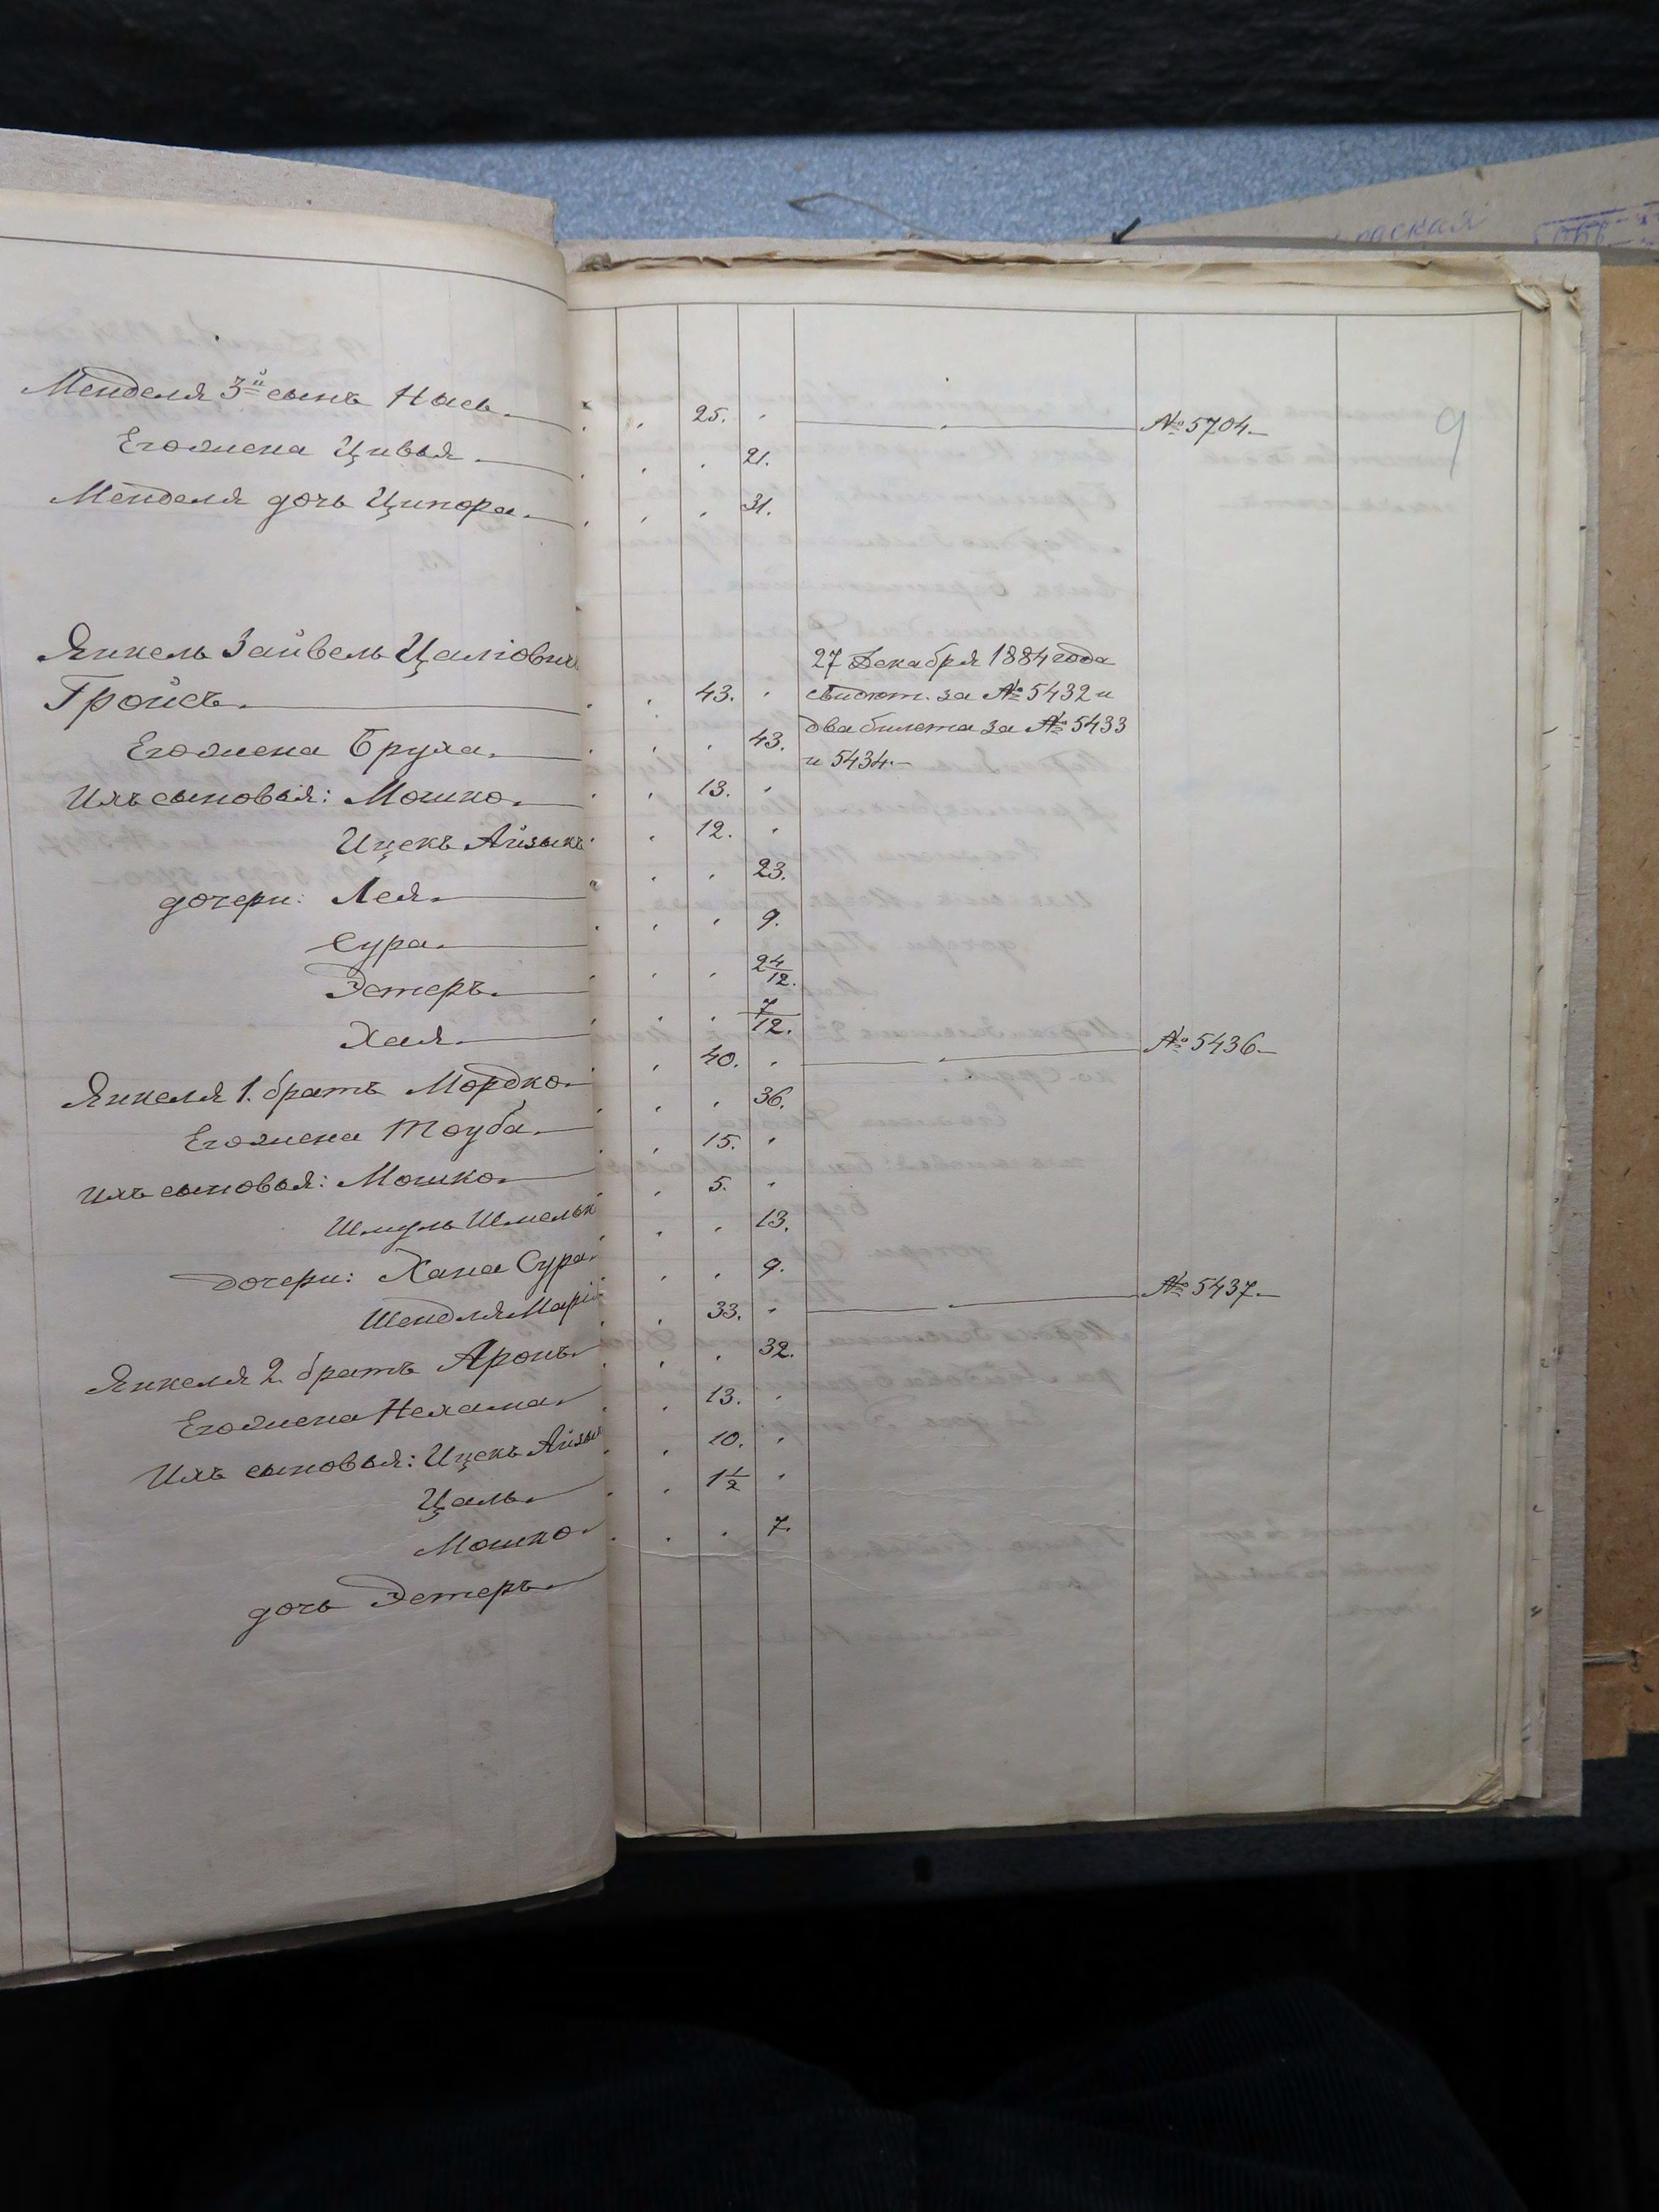 Менделя 3й сынъ Нась. 25. №5704.
Его жена Цивья. 21.
Менделя дочь Ципора. 31.
9
Янкель Зайвель Цаліовичъ
Гройсъ. 43.
27 Декабря 1884 года
свидѣт. за №5432 и
два билета за №5433
и 5434.
Его жена Бруха. 43.
Ихъ сыновья: Мошко. 13.
Ицекъ Айзыкъ 12.
дочери: Лея. 23.
Сура. 9.
Эстеръ. 2 4/12.
Хая. 7/12.
Янкеля 1. братъ Мордко. 40. №5436.
Его жена Тоуба. 36.
Ихъ сыновья: Мошко. 15.
Шмуль Шмельк 5.
дочери: Хана Сура. 13.
Шендля Марі 9.
Янкеля 2. братъ Аронъ. 33. №5437.
Его жена Нехама. 32.
Ихъ сыновья: Ицекъ Айзы 13.
Цаль. 10.
Мошко. 1 1/2
дочь Эстеръ. 7.